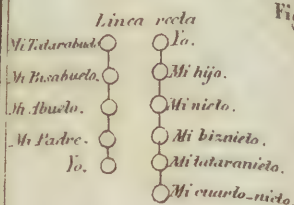 Fig
Linea recta
Mi Tatarabuel.
Mi Bisabuelo.
Mi Abuelo.
Mi Padre.
Yo.
Yo.
Mi hijo.
Mi nieto.
Mi biznieto.
Mi tataranieto.
Mi cuarto-nieto.